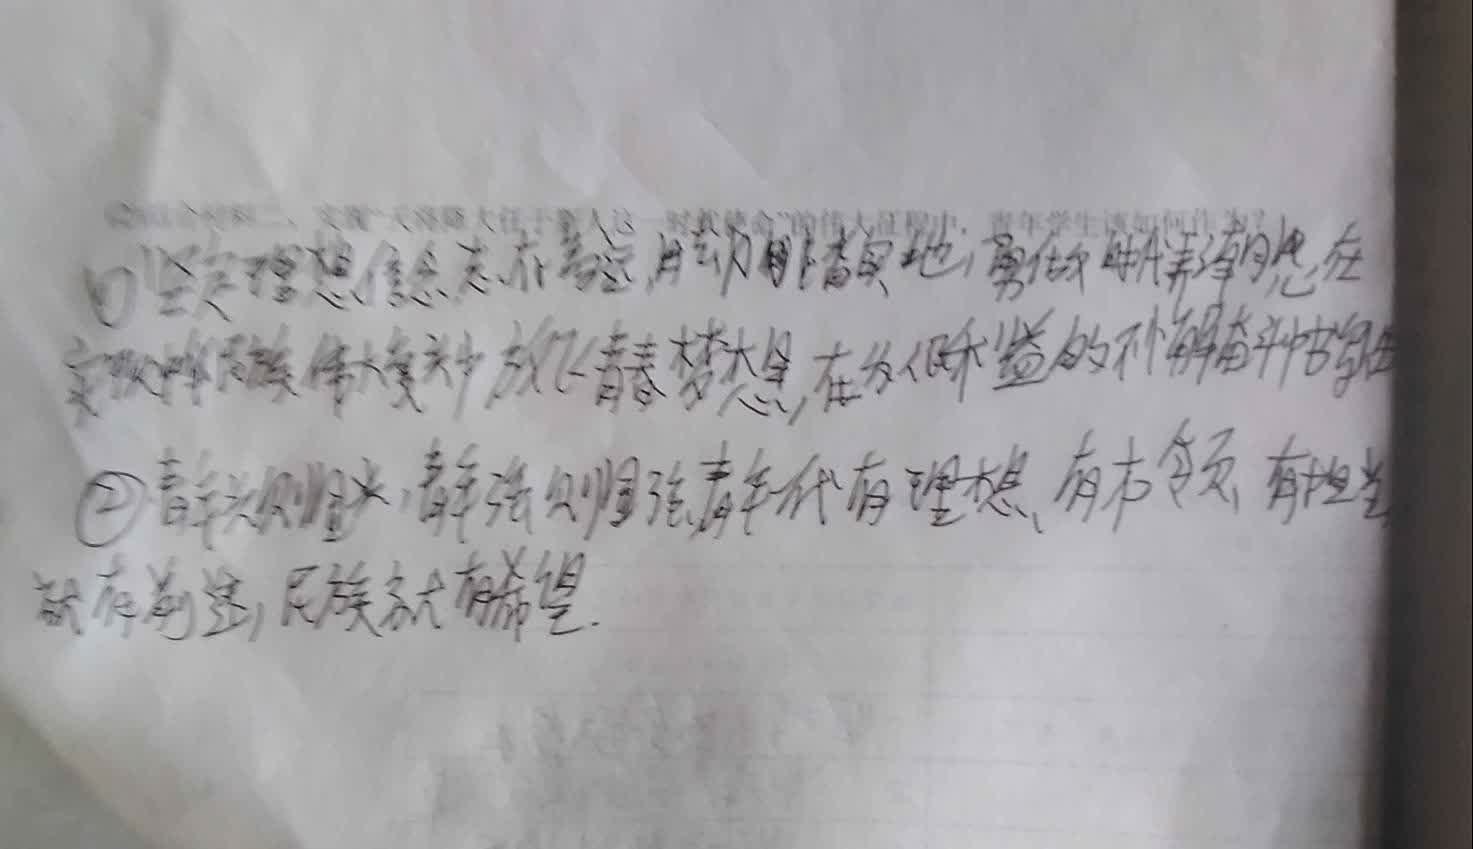 实现“天将降大任于斯人这一时代使命”的伟大征程中，青年学生该如何作为？
①坚定理想信念,志存高远,脚踏实地,勇做时代弄潮儿,在
实现中华民族伟大复兴中放飞青春梦想,在为人民利益的不懈奋斗中书写
②青年兴则国兴,青年强则国强,青年一代有理想、有本领、有担当
就有前途,民族就有希望.